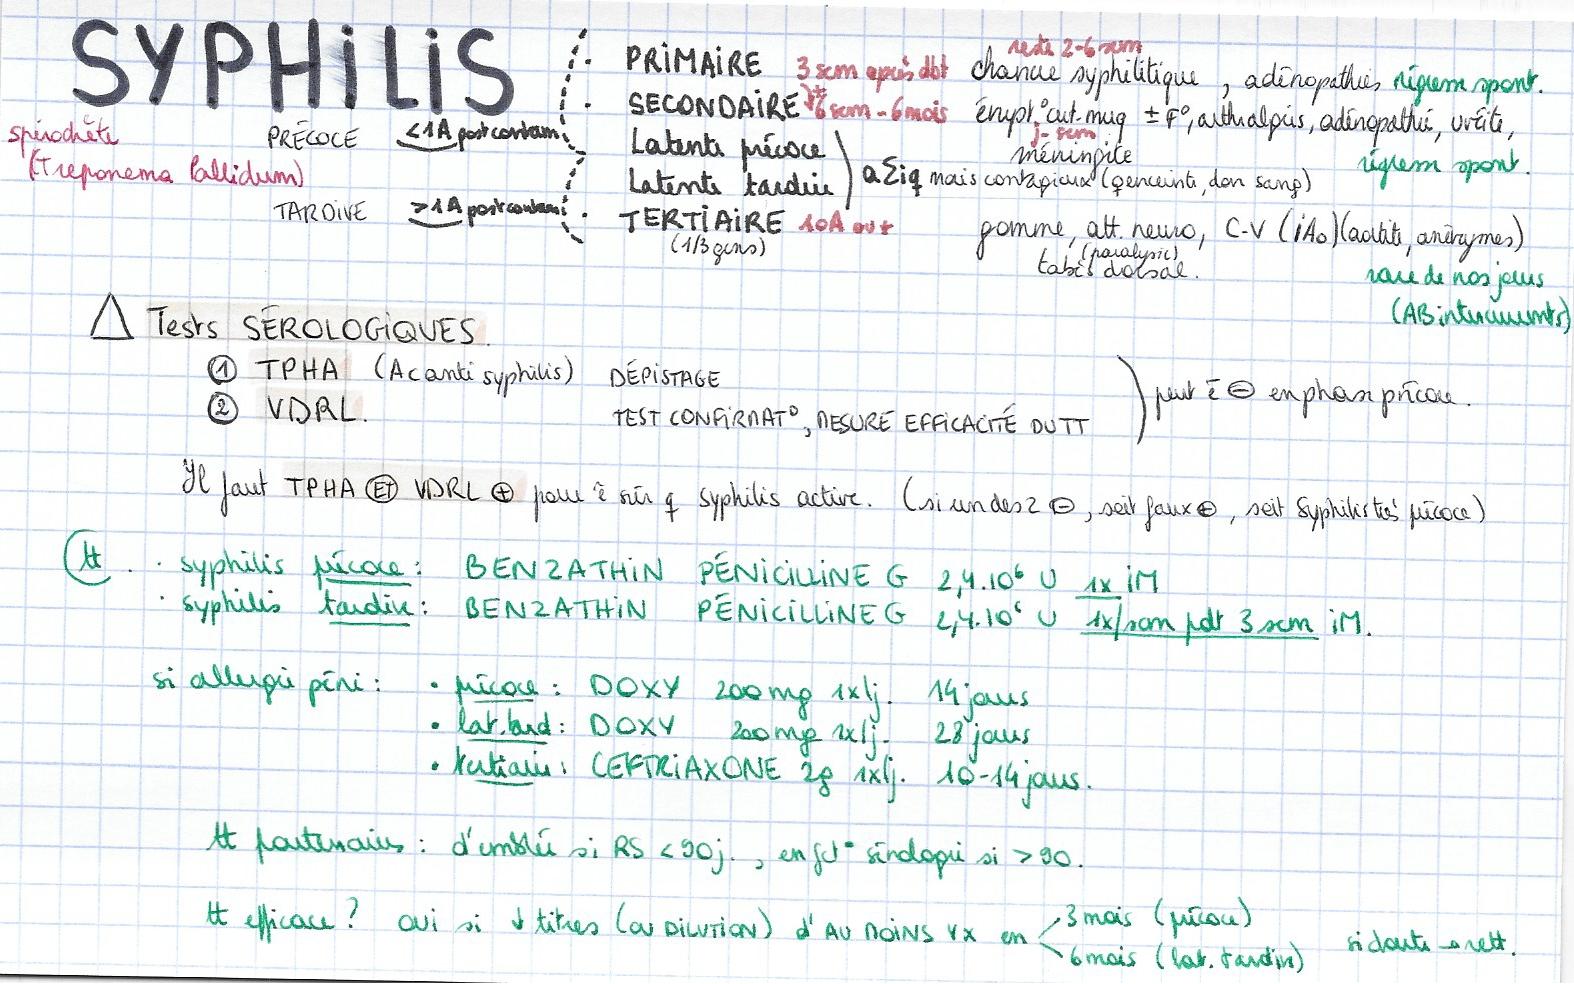 SYPHILIS
spirochète
(Treponema Pallidum)
PRÉCOCE <1A post contam
TARDIVE >1A post contam
reste 2-6 sem
PRIMAIRE 3 sem après dbt chancre syphilitique, adénopathies régressm spont.
SECONDAIRE 6 sem - 6 mois érupt° cut-muq ± f°, arthralgies, adénopathie, uvéite,
j-sem
méningite régressm spont.
Latente précoce
Latente tardive aΣiq mais contagieux (♀enceinte, don sang)
TERTIAIRE 10A ou + gomme, att. neuro, C-V (iAo) (aortite, anévrysmes)
(1/3 gens) (paralysie)
tabès dorsal.
rare de nos jours
(AB intercurrents)
Δ Tests SÉROLOGIQUES.
① TPHA (Ac anti syphilis) DÉPISTAGE
② VDRL. TEST CONFIRMAT°, MESURE EFFICACITÉ DU TT
peut ê ⊖ en phase précoce.
Il faut TPHA ET VDRL ⊕ pour ê sûr q syphilis active. (si un des 2 ⊖, soit faux ⊕, soit Syphilis très précoce)
tt . · syphilis précoce : BENZATHIN PÉNICILLINE G 2,4.10⁶ U 1x iM
· syphilis tardive : BENZATHIN PÉNICILLINE G 2,4.10⁶ U 1x/sem pdt 3 sem iM.
si allergie péni : • précoce : DOXY 200mg 1x/j. 14 jours
• lat. tard : DOXY 200mg 1x/j. 28 jours
• tertiaire : CEFTRIAXONE 2g 1x/j. 10-14 jours.
tt partenaires : d'emblée si RS < 90j., en fct° sérologie si > 90.
tt efficace ? oui si ↓ titres (ou DILUTION) d'AU MOINS 4x en
3 mois (précoce)
6 mois (lat. tardive)
si doute → rett.